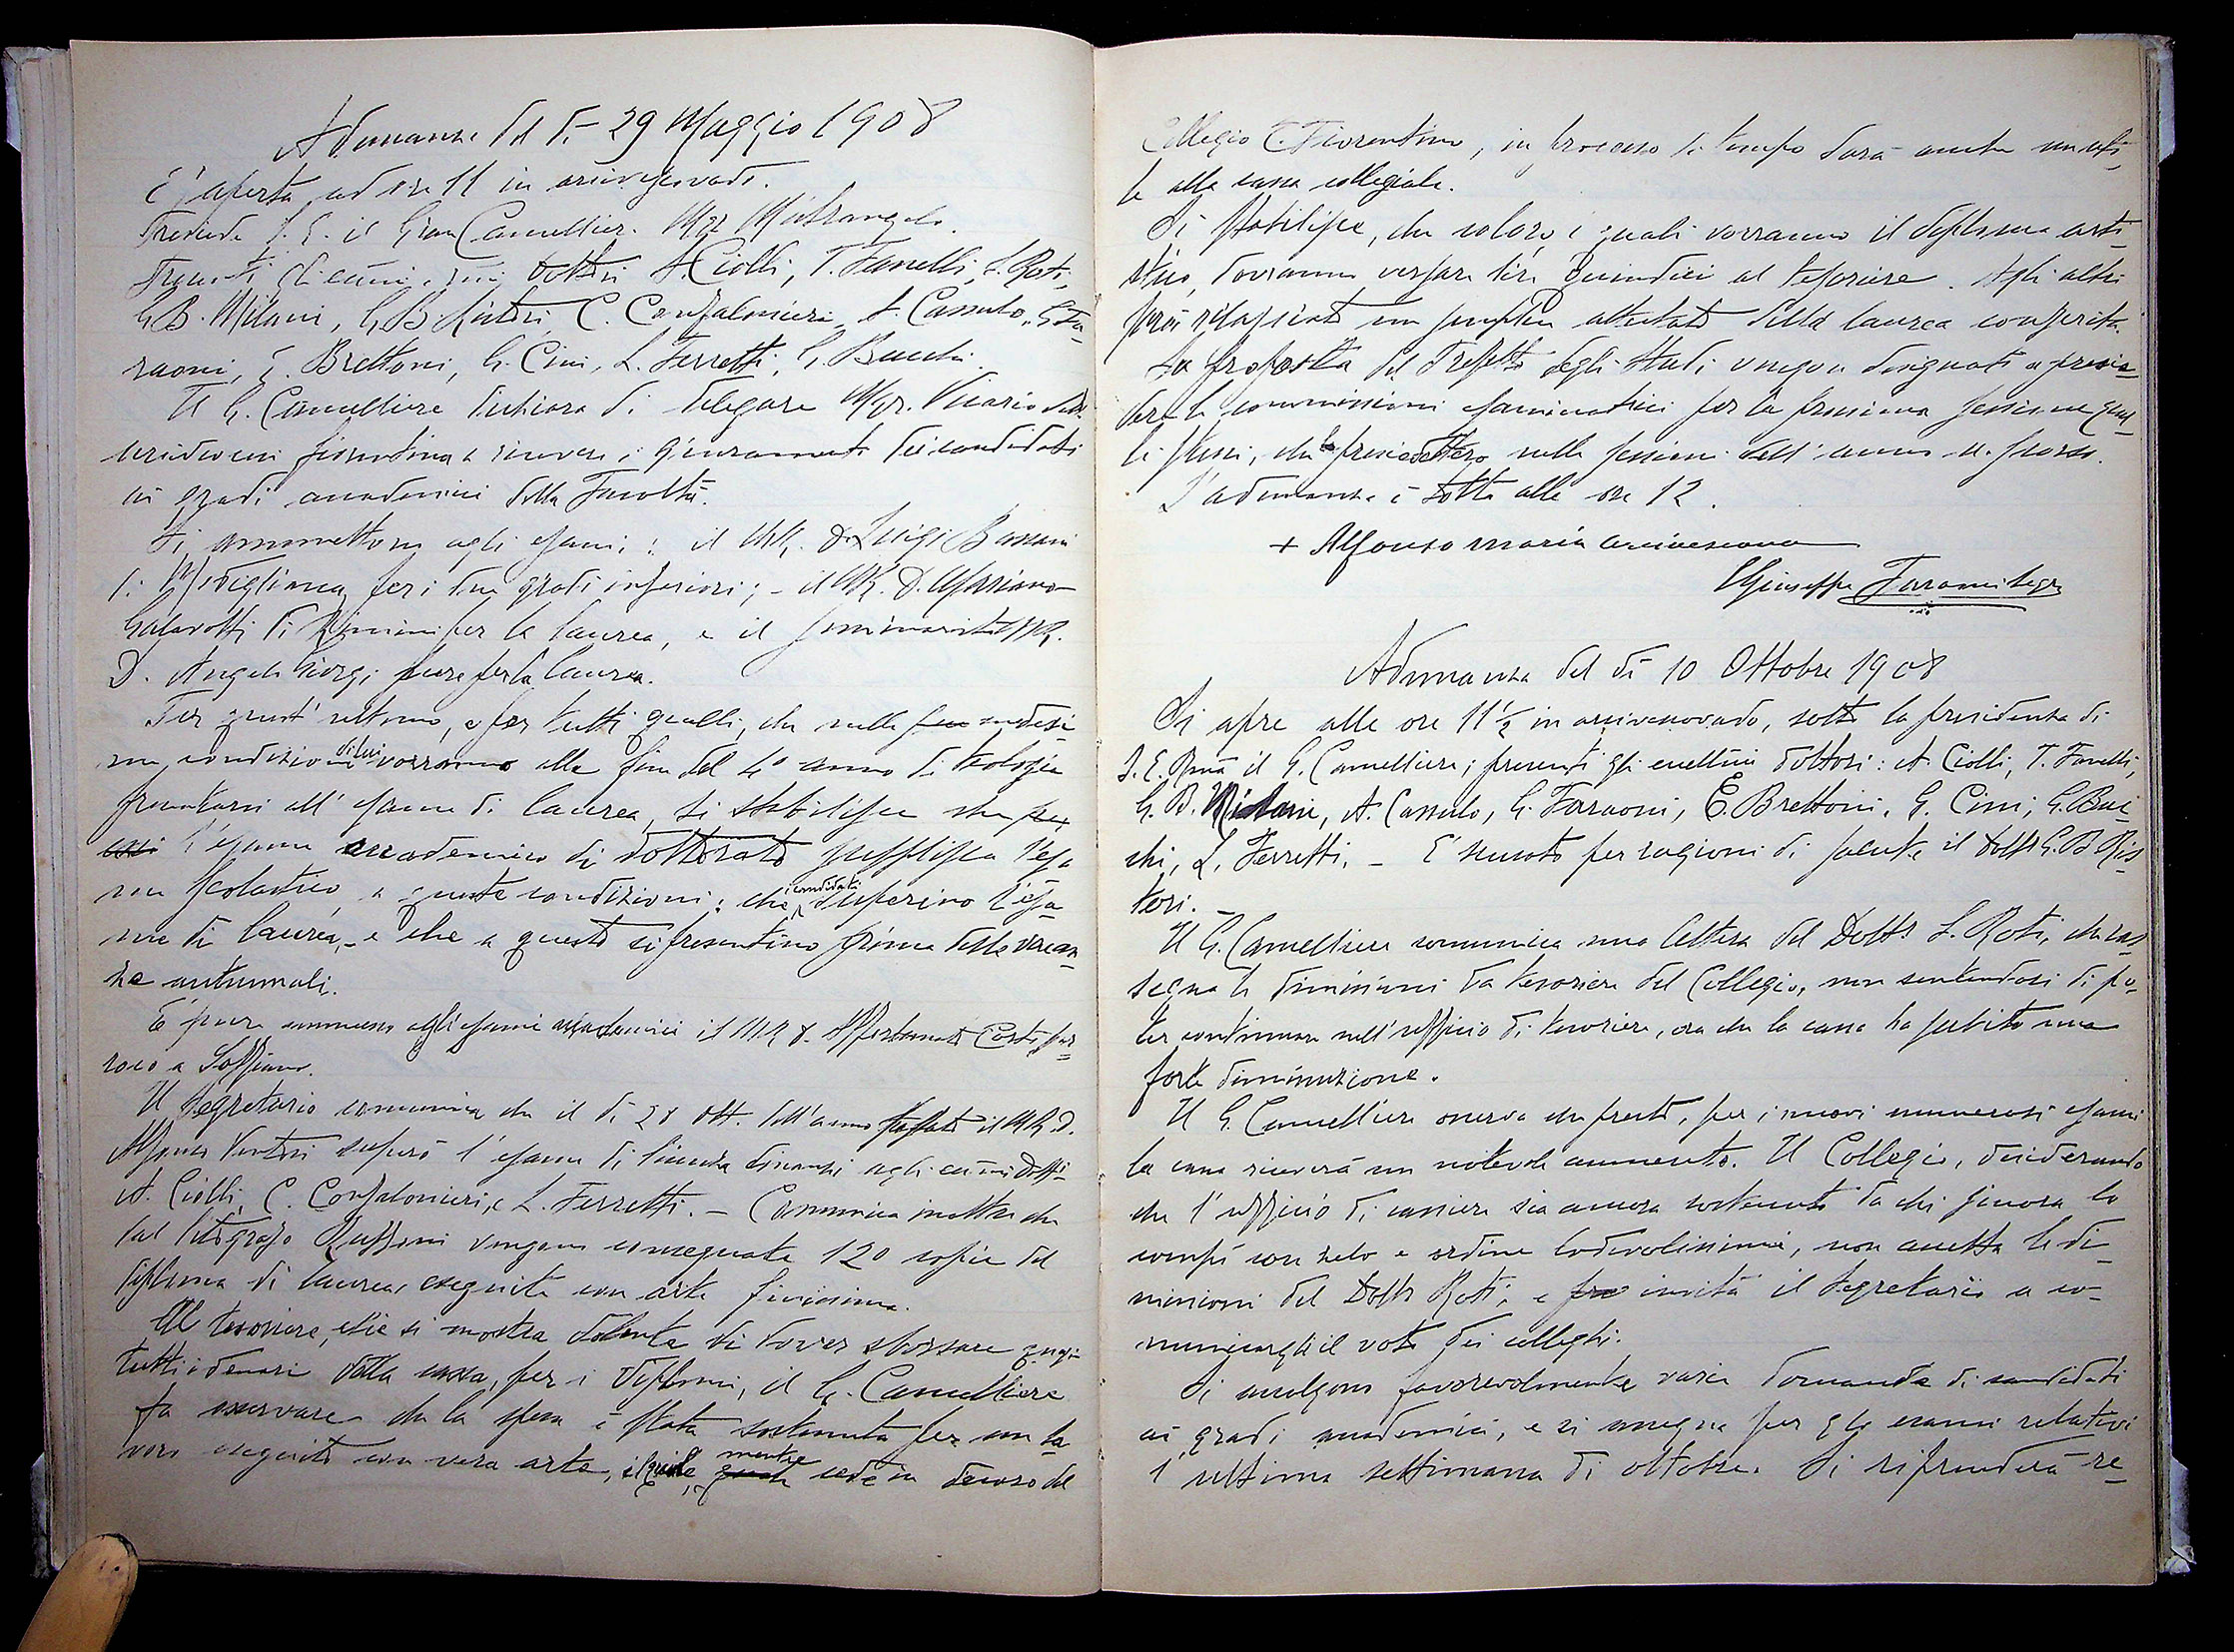 Adunanza del dì 29 Maggio 1908
È aperta ad ore 11 in arcivescovado.
Presiede S. E. il Gran Cancelliere Mgr Mistrangelo.
Presenti gli ecc.mi dottori A. Ciolli, T. Fanelli, L. Roti,
G. B. Milani, G. B. Ristori, C. Confalonieri, A. Cassulo, G. Fa-
raoni, E. Brettoni, G. Cini, L. Ferretti, G. Bucchi.
Il G. Cancelliere dichiara di delegare Mgr. Vicario
fiorentina a ricevere i giuramenti dei candidati
ai gradi accademici della Facoltà.
Si ammettono agli esami: il MR. D. Luigi Bassani
di Modigliana per i due gradi inferiori; - il MR. D. Mariano
Galavotti di Rimini per la laurea, e il seminarista MR.
D. Angelo Giorgi pure per la laurea.
Per quest'ultimo, e per tutti quelli, che nella sua medesi-
ma condizione di lui vorranno alla fine del 4º anno di teologia
presentarsi all'esame di laurea, si stabilisce che per
così l'esame accademico di dottorato supplisca l'esa-
me scolastico, a queste condizioni: che i candidati superino l'esa-
me di laurea, - e che a questo si presentino prima delle vacan-
ze autunnali.
È pure ammesso agli esami accademici il MR D. Affortunato Conti par-
roco a Soffiano.
Il Segretario comunica che il dì 28 Ott. dell'anno passato il MR D.
Alfonso Ventori superò l'esame di licenza dinanzi agli ecc.mi Dotti
A. Ciolli, C. Confalonieri, e L. Ferretti. - Comunica inoltre che
dal litografo Ruffoni vengono consegnate 120 copie del
diploma di laurea, eseguite con arte finissima.
Al tesoriere, che si mostra dolente di dover sborsare quasi
tutti i denari della cassa, per i diplomi, il G. Cancelliere
fa osservare che la spesa è stata sostenuta per un la-
voro eseguito con vera arte, il quale, mentre cede in decoro del
Collegio T. Fiorentino, in processo di tempo darà anche un uti-
le alla cassa collegiale.
Si stabilisce, che coloro i quali vorranno il diploma arti-
stico, dovranno versare lire quindici al tesoriere. Agli altri
sarà rilasciato un semplice attestato della laurea conferita.
Su proposta del Prefetto degli Studi vengon designati a presie-
dere le commissioni esaminatrici per la prossima sessione quel-
li stessi, che le presiedettero nelle sessioni dell'anno u. scorso.
L'adunanza è sciolta alle ore 12.
+ Alfonso Maria Arcivescovo
Giuseppe Faraoni Segr
Adunanza del dì 10 Ottobre 1908
Si apre alle ore 11 ½ in arcivescovado, sotto la presidenza di
S. E. Rma il G. Cancelliere; presenti gli ecc.mi dottori: A. Ciolli, T. Fanelli,
G. B. Milani, A. Cassulo, G. Farraoni, E. Brettoni, G. Cini, G. Buc-
chi, L. Ferretti. - È scusato per ragioni di salute il Dottr G. B. Ris-
tori. -
Il G. Cancelliere comunica una lettera del Dottr L. Roti, che ras-
segna le dimissioni da tesoriere del Collegio, non sentendosi di po-
ter continuare nell'ufficio di tesoriere, ora che la cassa ha subito una
forte diminuzione.
Il G. Cancelliere osserva che presto, per i nuovi numerosi esami
la cassa riceverà un notevole aumento. Il Collegio, desiderando
che l'ufficio di cassiere sia ancora sostenuto da chi finora lo
compì con zelo e ordine lodevolissimi, non accetta le di-
missioni del Dottr Roti, e invita il Segretario a co-
municargli il voto dei colleghi.
Si accolgono favorevolmente varie domande di candidati
ai gradi accademici, e si assegna per gli esami relativi
l'ultima settimana di ottobre. Si riprenderà re-